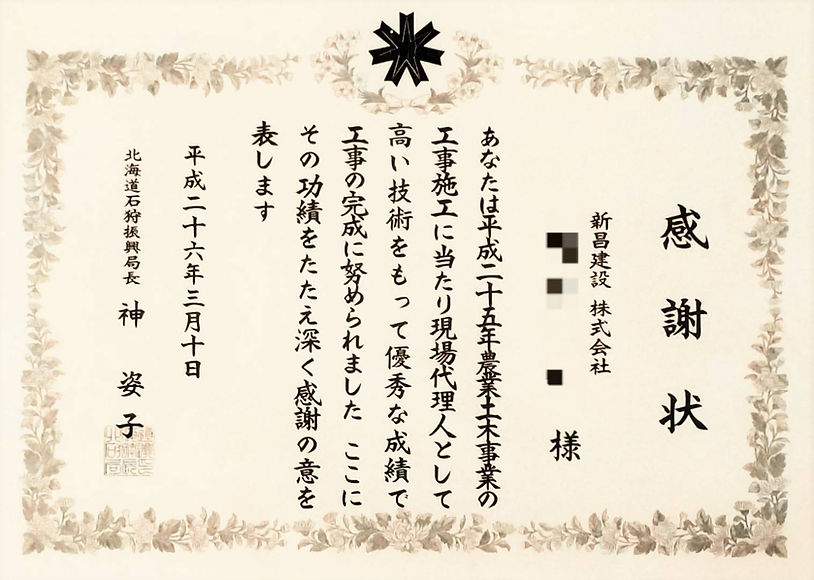 感謝状
新昌建設 株式会社
様
あなたは平成二十五年農業土木事業の
工事施工に当たり現場代理人として
高い技術をもって優秀な成績で
工事の完成に努められました ここに
その功績をたたえ深く感謝の意を
表します
平成二十六年三月十日
北海道石狩振興局長 神 姿子